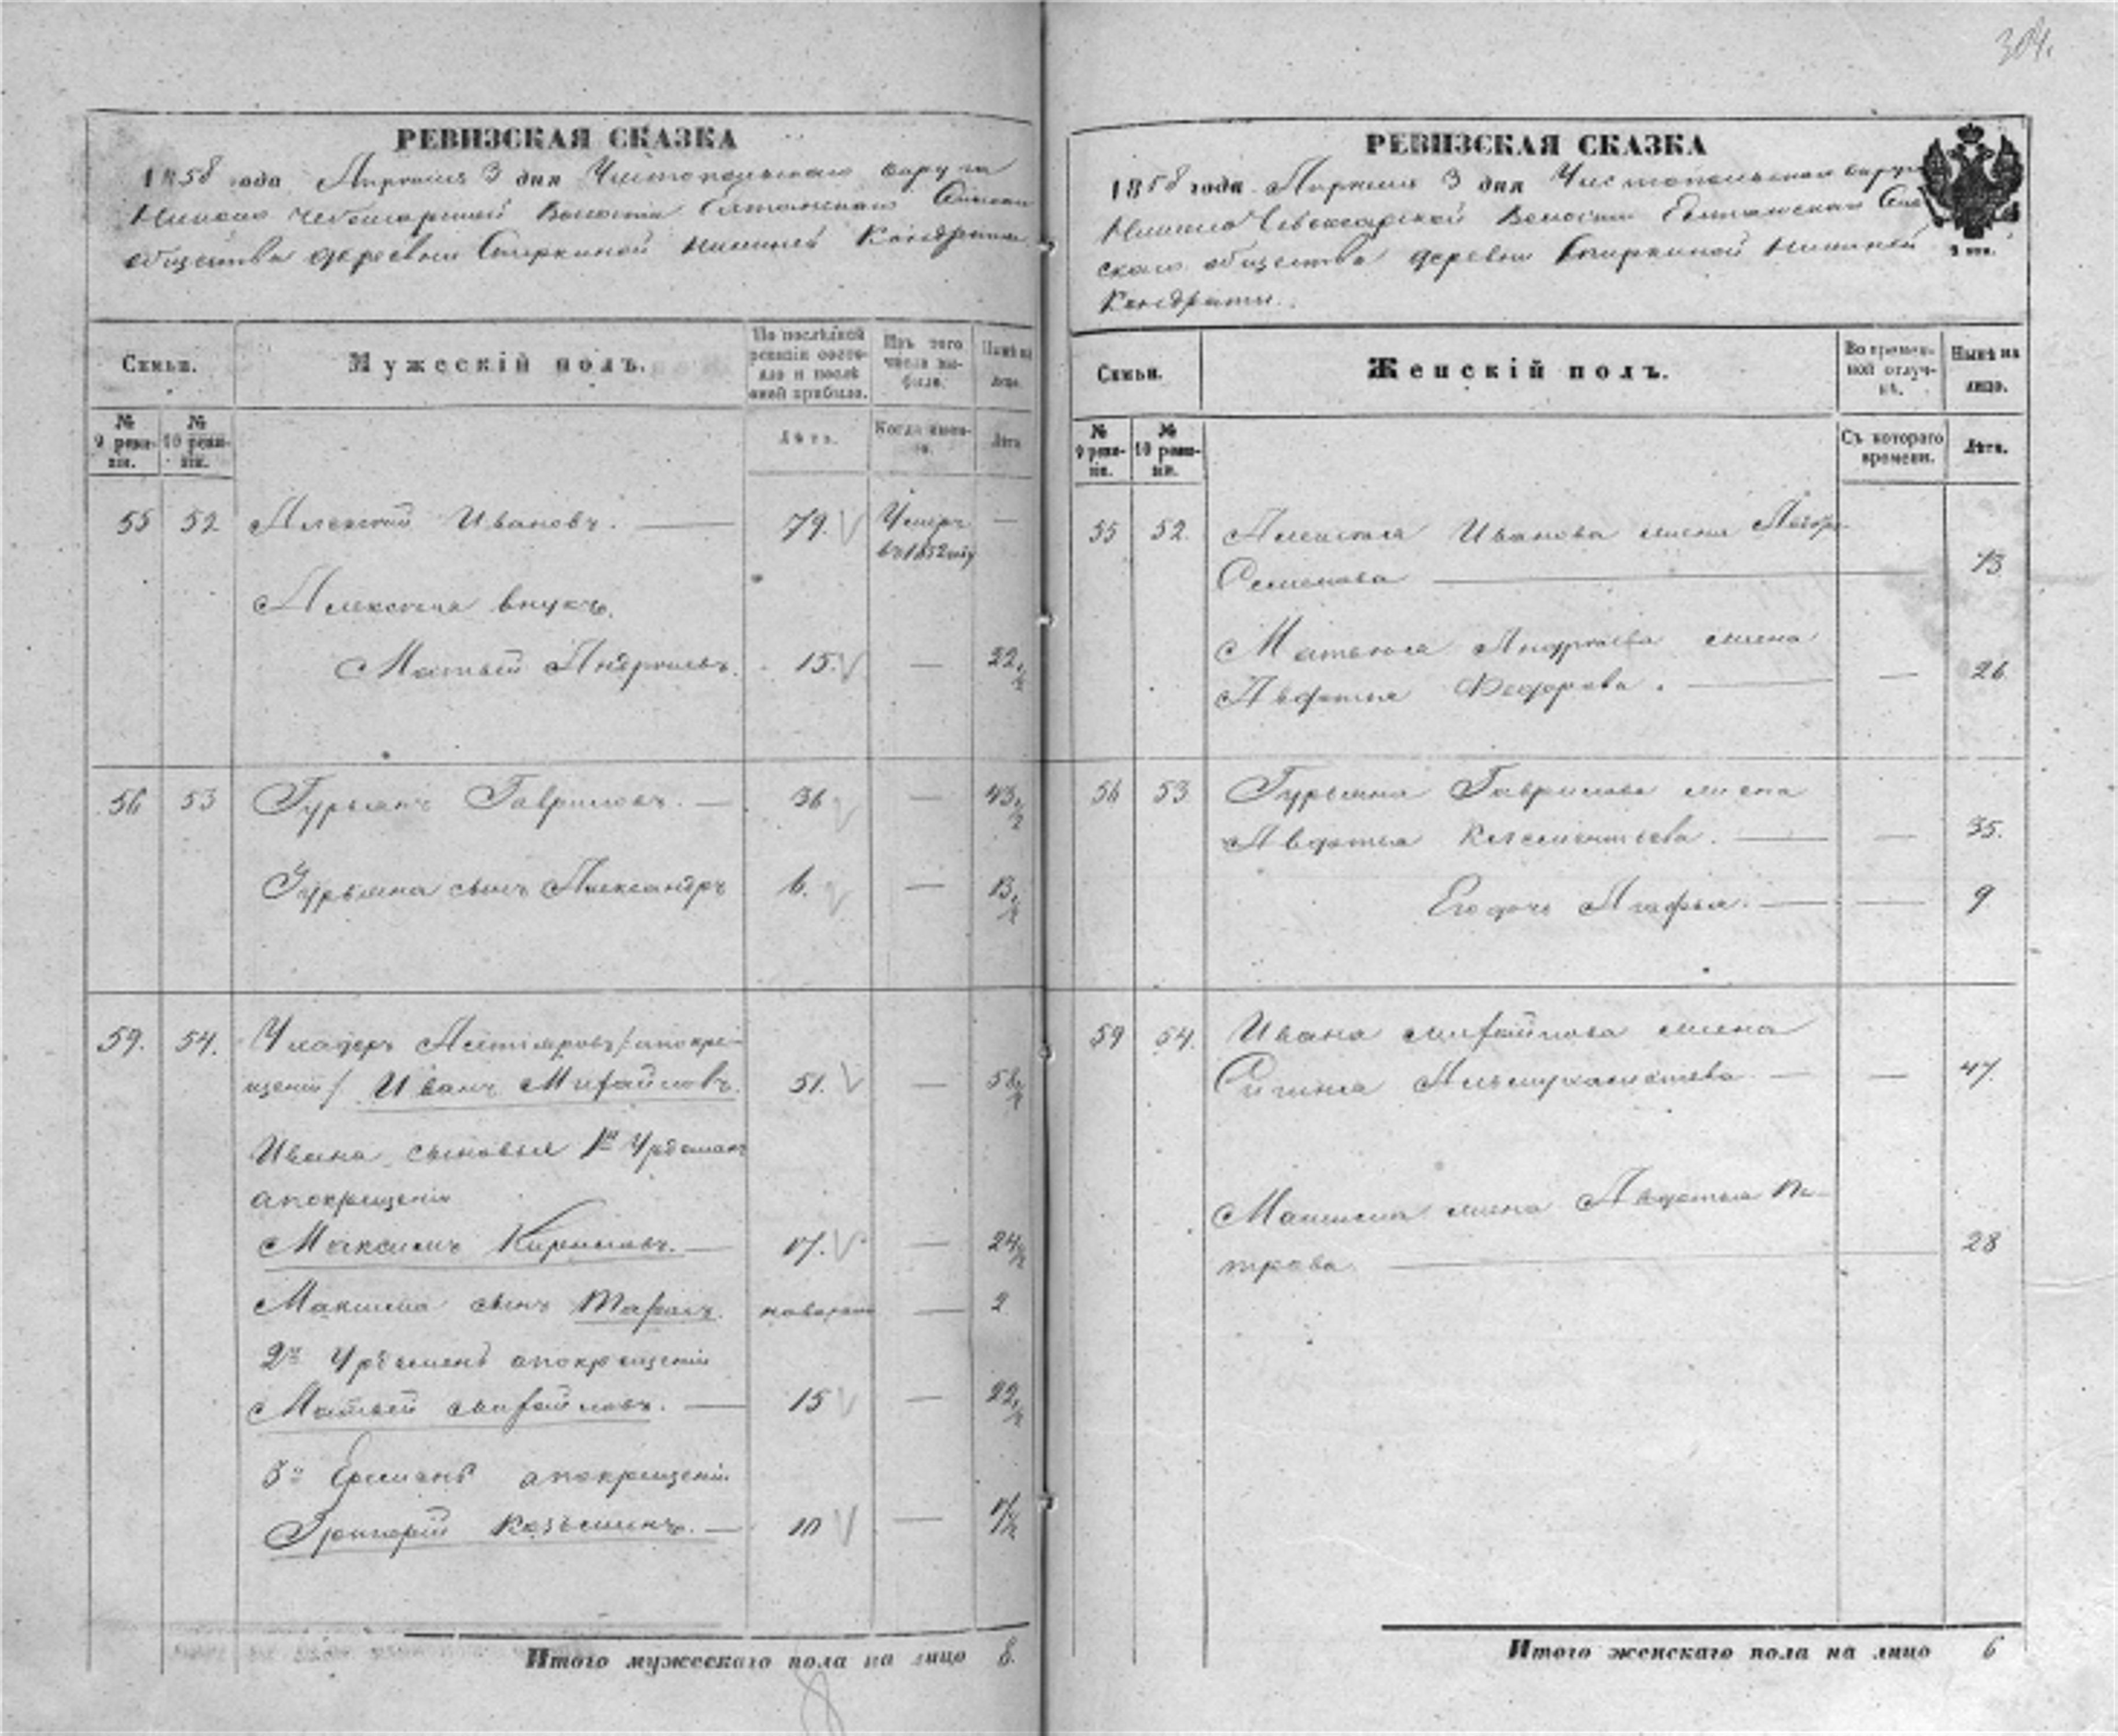 304.
РЕВИЗСКАЯ СКАЗКА
1858 года Апреля 3 дня Чистопольскаго округа
волости
общества деревни Спиркиной Кондраты
Семьи.
Мужескій полъ.
По послѣдней ревизіи состояло и послѣ оной прибыло.
Изъ того числа выбыло.
Нынѣ на лицо.
№ 9 ревизіи.
№ 10 ревизіи.
Лѣта.
Когда именно.
Лѣта
55 52 Алексей Ивановъ. 79. Умеръ —
въ 1852 году
Алексея внукъ.
Матвей Андреевъ. 15. — 22 1/2
56 53 Гурьянъ Гавриловъ. — 36 — 43 1/2
Гурьяна сынъ Александръ 6. — 13 1/2
59. 54. /апокре-
щеніи/ Иванъ Михайловъ. 51. — 58 1/2
Ивана сыновья 1й
апокрещеніи
Максимъ Кириловъ. — 17. — 24 1/2
Максима сынъ Тарасъ. — 2
2й апокрещеніи
Матвей Михайловъ. — 15 — 22 1/2
3й апокрещеніи
Григорій Козьминъ. — 10 — 17 1/2
Итого мужескаго пола на лицо 8.
РЕВИЗСКАЯ СКАЗКА
1858 года Апреля 3 дня Чистопольскаго округа
Чебоксарской Волости
скаго общества деревни Спиркиной
Кондраты.
Семьи.
Женскій полъ.
Во временной отлучкѣ.
Нынѣ на лицо.
№ 9 ревизіи.
№ 10 ревизіи.
Съ котораго времени.
Лѣта.
55 52. Алексея Иванова жена
Семенова —
Матвея Андреева жена
Авдотья Федорова. — — 26
56 53 Гурьяна Гаврилова жена
Авдотья Клементьева. — — 35.
Его дочь Агафья. — — 9
59 54. Ивана Михайлова жена
— — 47.
Максима жена Авдотья Пе-
трова. — 28
Итого женскаго пола на лицо 6